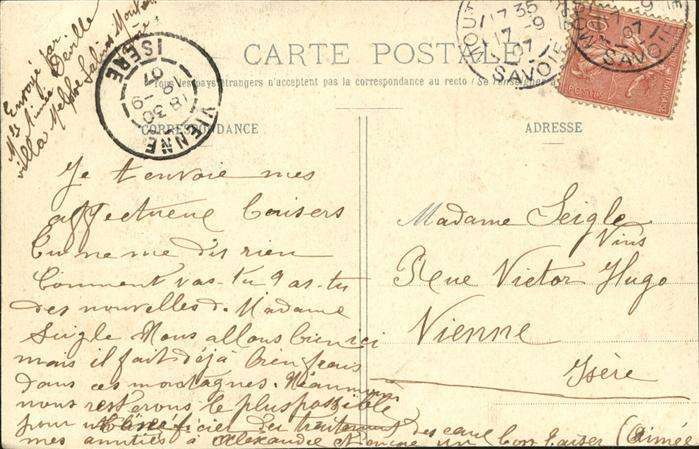 Envoyé par
Mme Aimée Deville
villa
CARTE POSTALE
Tous les pays étrangers n'acceptent pas la correspondance au recto (Se renseigner
CORRESPONDANCE
ADRESSE
VIENNE
ISÈRE
18 30
9
07
17 35
17 -9
07
SAVOIE
SAVOIE
Je t envoie mes
affectueux baisers
Tu ne me dis rien
Comment vas-tu? as-tu
des nouvelles de Madame
Seigle Nous allons bien ici
mais il fait déjà bien frais
dans ces montagnes. Néanmoins
nous resterons le plus possible
pour bénéficier du traitement des eaux
mes amitiés à Alexandre encore un bon baiser (Aimée
Madame Seigle
Vins
Rue Victor Hugo
Vienne
Isère